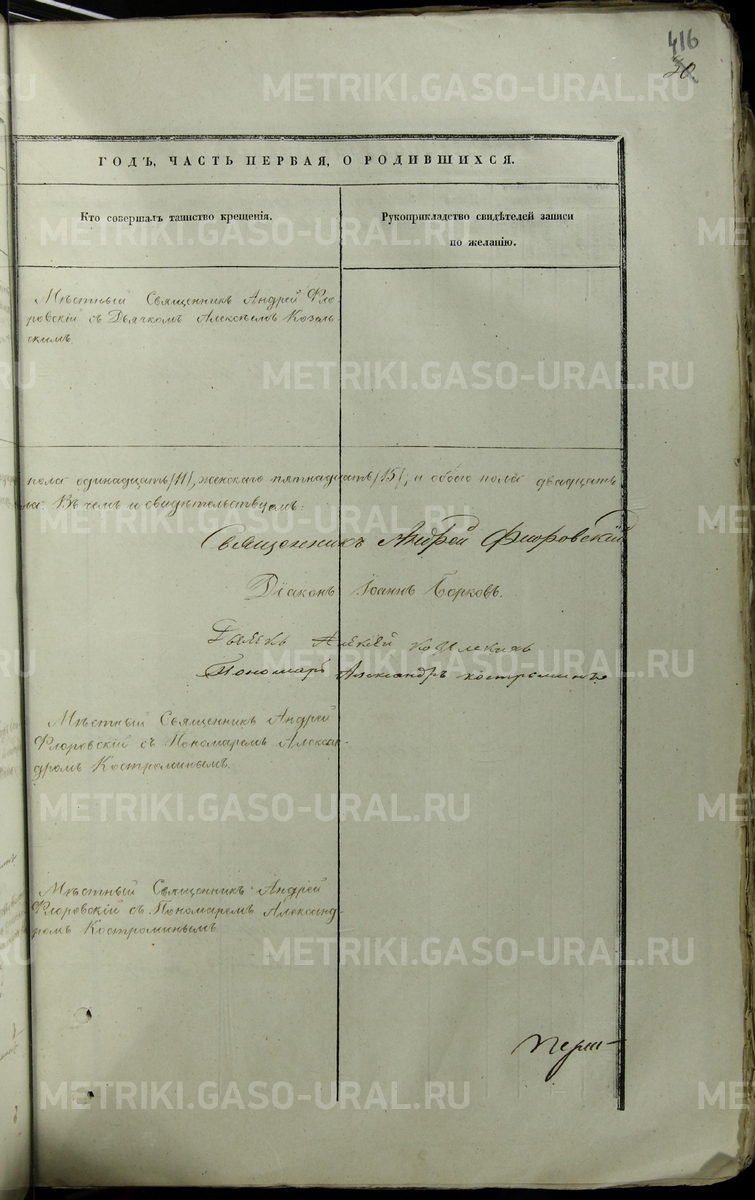 416
20
ГОДЪ, ЧАСТЬ ПЕРВАЯ, О РОДИВШИХСЯ.
Кто совершалъ таинство крещенія.
Рукоприкладство свидѣтелей записи
по желанію.
Мѣстный Священникъ Андрей Фло-
ровскій съ Дьячкомъ Алексѣемъ Козель-
скимъ.
пола одинадцать /11/, женскаго пятнадцать /15/, и обоего пола двадцать
Въ чемъ и свидѣтельствуемъ:
Священникъ Андрей Флоровскій
Діаконъ Іоаннъ Борковъ.
Дьячекъ Алексей
Пономарь Александръ Костроминъ
Мѣстный Священникъ Андрей
Флоровскій съ Пономаремъ Алексан-
дромъ Костроминымъ.
Мѣстный Священникъ Андрей
Флоровскій съ Пономаремъ Александ-
ромъ Костроминымъ
METRIKI.GASO-URAL.RU